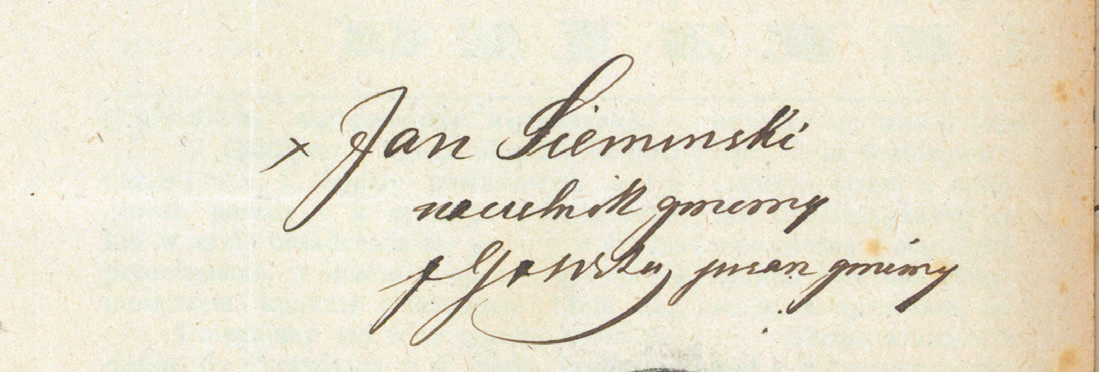 × Jan Sieminski
naczelnik gminy
pisarz gminy